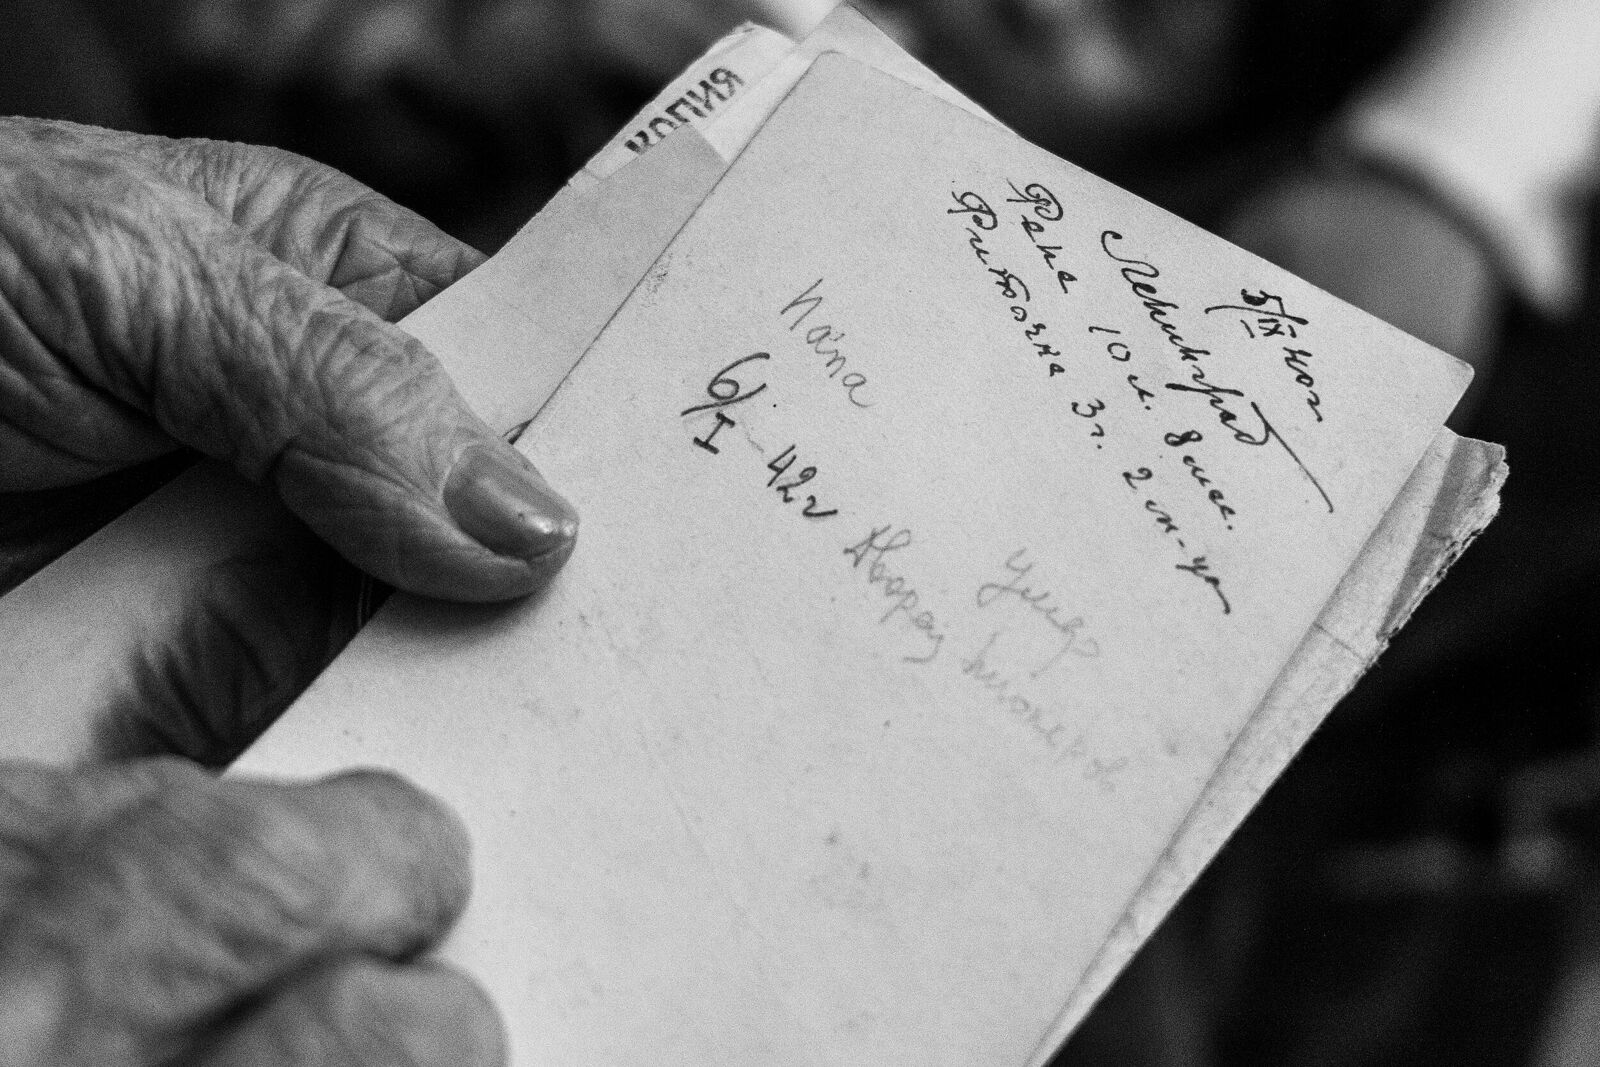 КОПИЯ
5/IX 40г
Ленинград
Фаня 10 л. 8 мес.
Фиточка 3 г. 2 м-ца
Папа
6/I-42г
Улица
Дворец пионеров